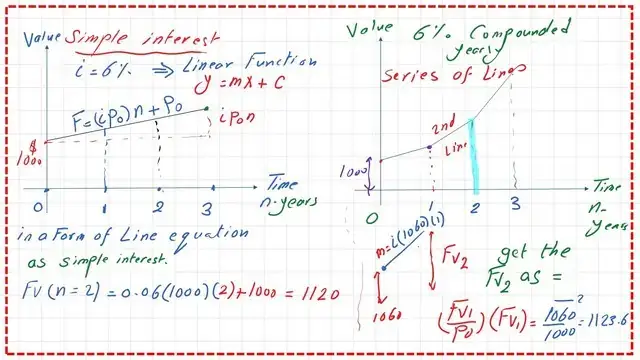 Value
Simple interest
i = 6% ⇒ Linear Function
y = mx + C
F=(iP₀)n + P₀
iP₀n
$
1000
0 1 2 3
Time
n-years
in a Form of Line equation
as simple interest.
FV (n = 2) = 0.06(1000)(2)+1000 = 1120
Value
6% Compounded
yearly
Series of Lines
2nd
Line
1000
0 1 2 3
Time
n-
years
m=i(1060)(1)
FV₂
1060
get the
FV₂ as =
(FV₁/P₀)(FV₁) = 1060²/1000 = 1123.6